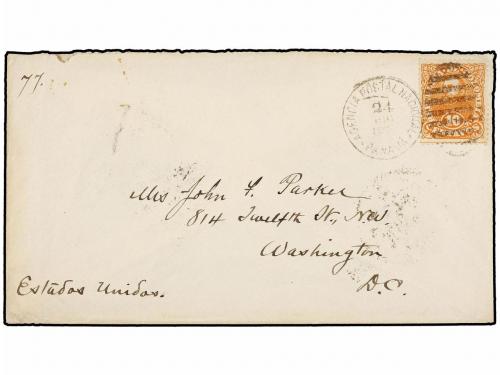 77.
AGENCIA POSTAL NACIONAL
24
10
Mrs John F. Parker
814 Twelfth St., N.W.
Washington
D.C.
Estados Unidos.